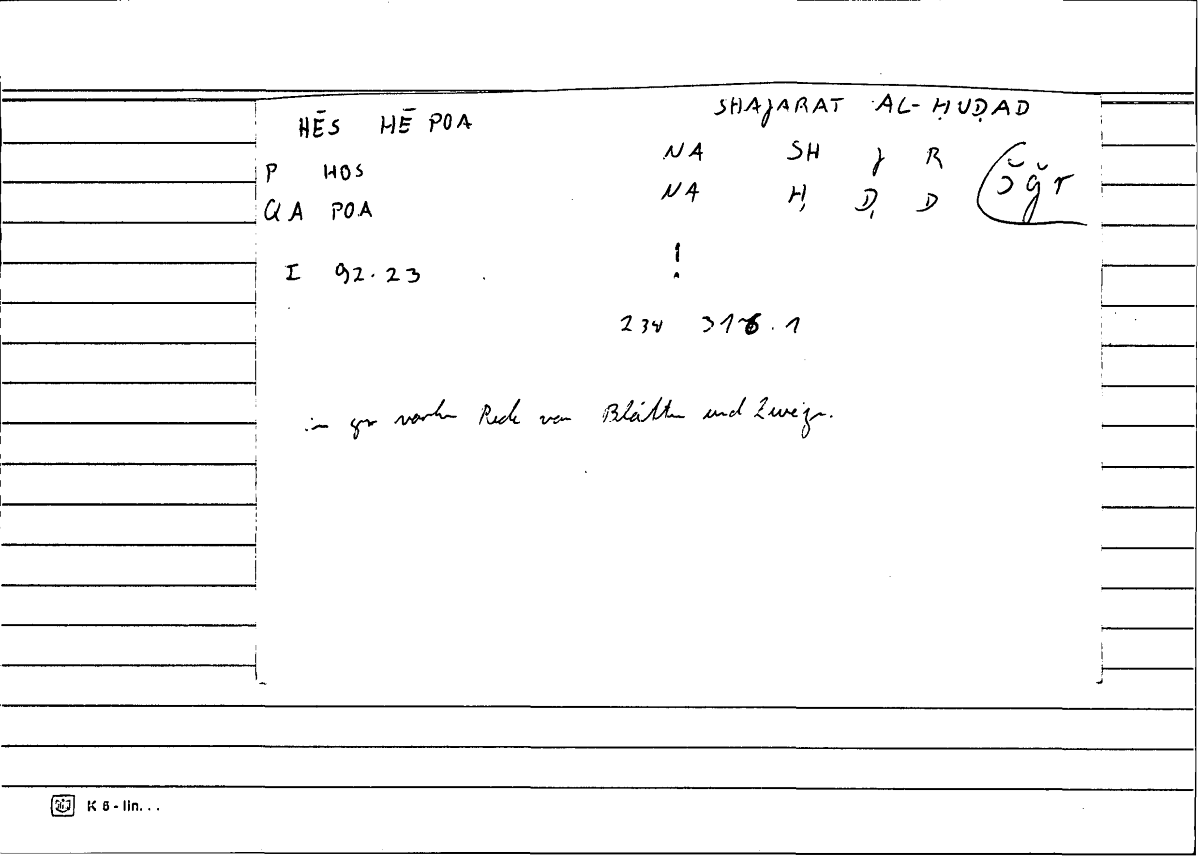 HĒS HĒ POA SHAJARAT AL-ḤUḌAD
P HOS NA SH J R
QA POA NA Ḥ Ḍ D
šğr
I 92.23 !
234 316.1
im gr vorher Rede von Blättern und Zweigen.
K 6 - lin...